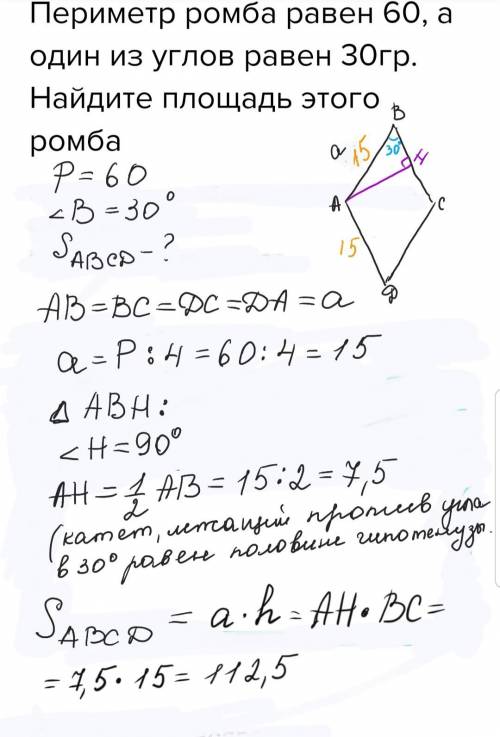 Периметр ромба равен 60, а
один из углов равен 30гр.
Найдите площадь этого
ромба
B
a 15 30° H
A C
15
D
P = 60
∠B = 30°
S ABCD - ?
AB = BC = DC = DA = a
a = P : 4 = 60 : 4 = 15
Δ ABH :
∠H = 90°
AH = 1/2 AB = 15 : 2 = 7,5
(катет, лежащий против угла
в 30° равен половине гипотенузы.
S ABCD = a · h = AH · BC =
= 7,5 · 15 = 112,5